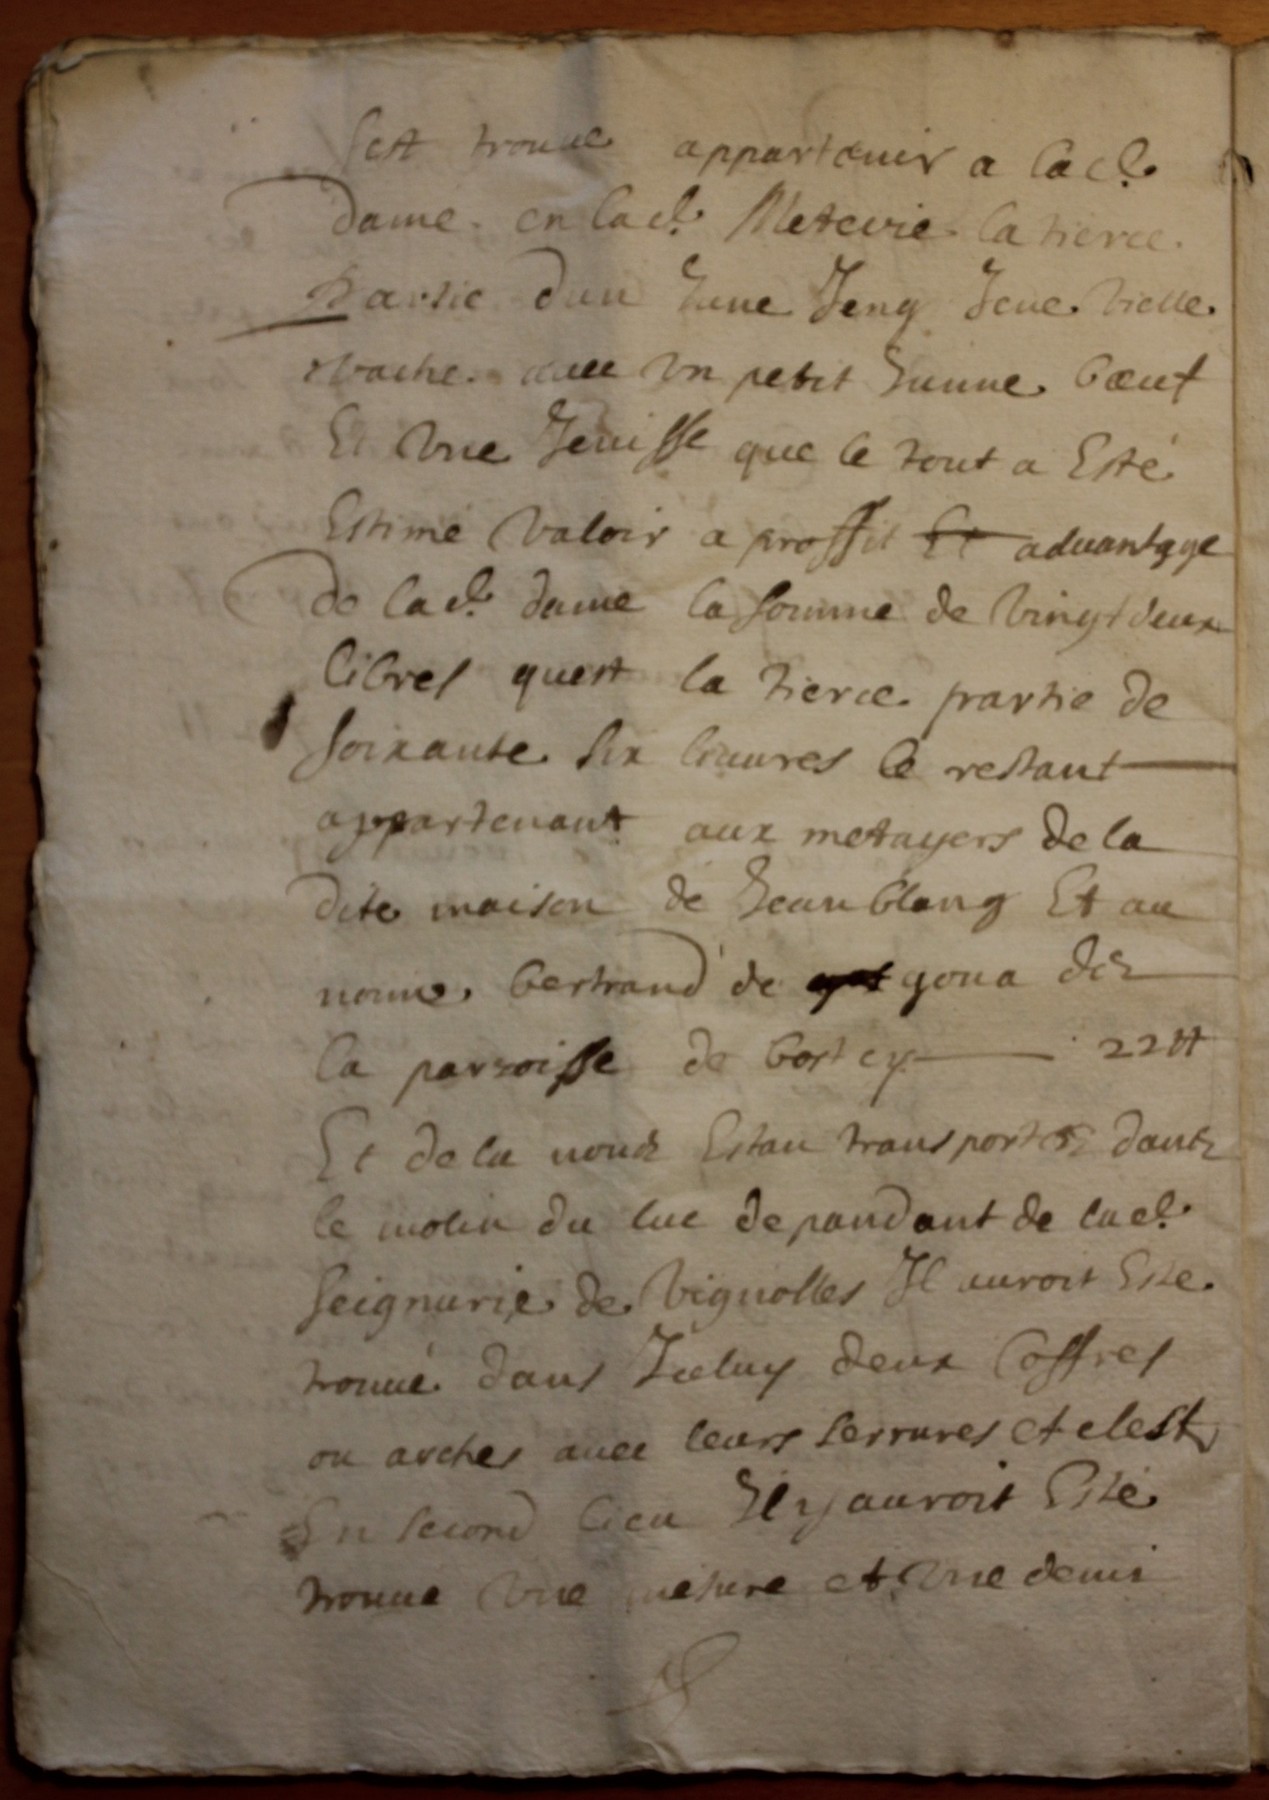 sest trouve appartenir a lad.
dame en lad. Meterie la tierce
Partie dun June Jeng Jene vielle
vache avec vn petit Junne bœuf
Et vne Jenisse que le tout a Esté
Estimé valoir a proffit Et advantage
de lad. dame la somme de vingt deux
libres quest la tierce partie de
soixante six liuures le restant
appartenant aux metayers de la
dite maison de Jean blang Et au
nome bertrand de goua de
la parroisse de bostey 22 ₶
Et de la nous Estan transportes dans
le molin du luc depandant de lad.
seignurie de vignolles Jl auroit Este
trouué dans Jceluy deux Coffres
ou arches auec leurs serrures et clest
En second lieu Jl y auroit Esté
trouue vne mesure et vne demi